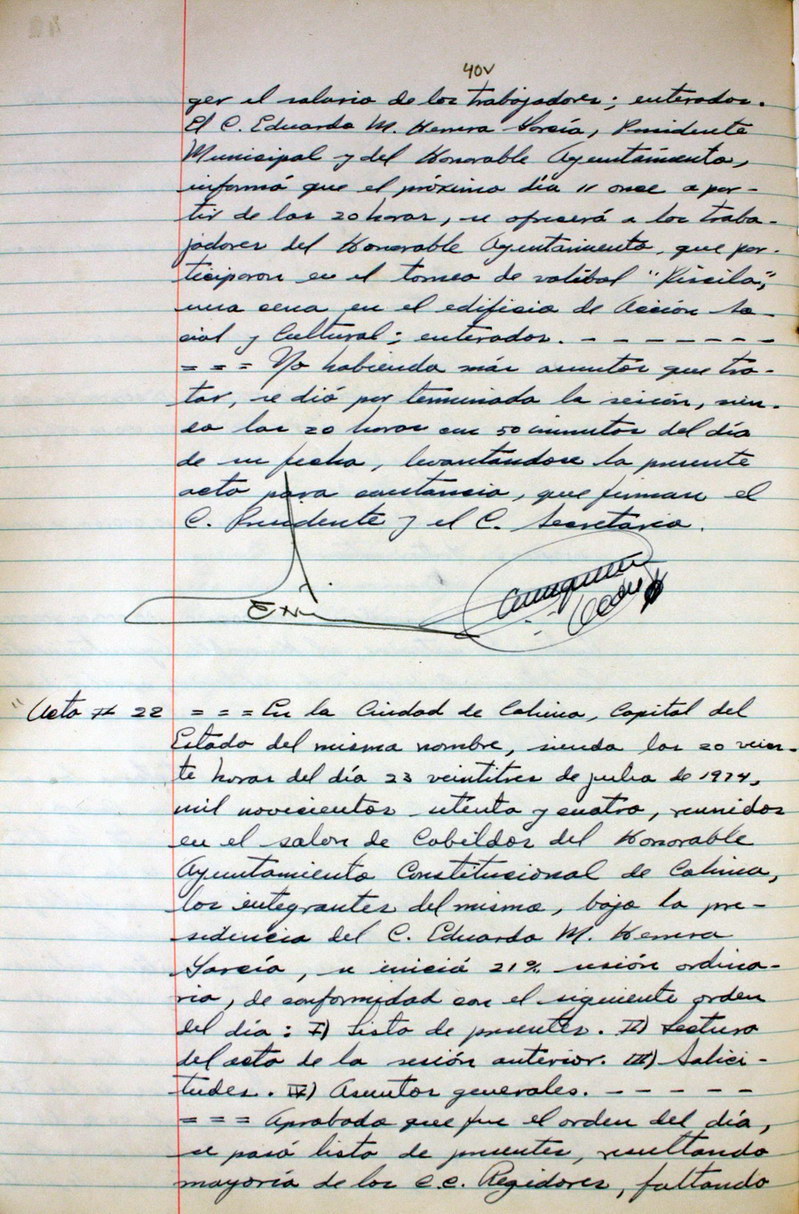 40v
ger el salario de los trabajadores; enterados.
El C. Eduardo M. Herrera García, Presidente
Municipal y del Honorable Ayuntamiento,
informó que el próximo día 11 once a par-
tir de las 20 horas, se ofrecerá a los traba-
jadores del Honorable Ayuntamiento, que par-
ticiparon en el torneo de volibol
una cena en el edificio de Acción So-
cial y Cultural; enterados. - - - - - - -
= = = No habiendo más asuntos que tra-
tar, se dió por terminada la sesión, sien-
do las 20 horas con 50 minutos del día
de su fecha, levantándose la presente
acta para constancia, que firman el
C. Presidente y el C. Secretario.
Acta # 22 = = = En la Ciudad de Colima, Capital del
Estado del mismo nombre, siendo las 20 vein-
te horas del día 23 veintitres de julio de 1974,
mil novecientos setenta y cuatro, reunidos
en el salon de Cabildos del Honorable
Ayuntamiento Constitucional de Colima,
los integrantes del mismo, bajo la pre-
sidencia del C. Eduardo M. Herrera
García, se inició 21ª sesión ordina-
ria, de conformidad con el siguiente orden
del día: I) Lista de presentes. II) Lectura
del acta de la sesión anterior. III) Solici-
tudes. IV) Asuntos generales. - - - - -
= = = Aprobado que fue el orden del día,
se pasó lista de presentes, resultando
mayoría de los C.C. Regidores, faltando